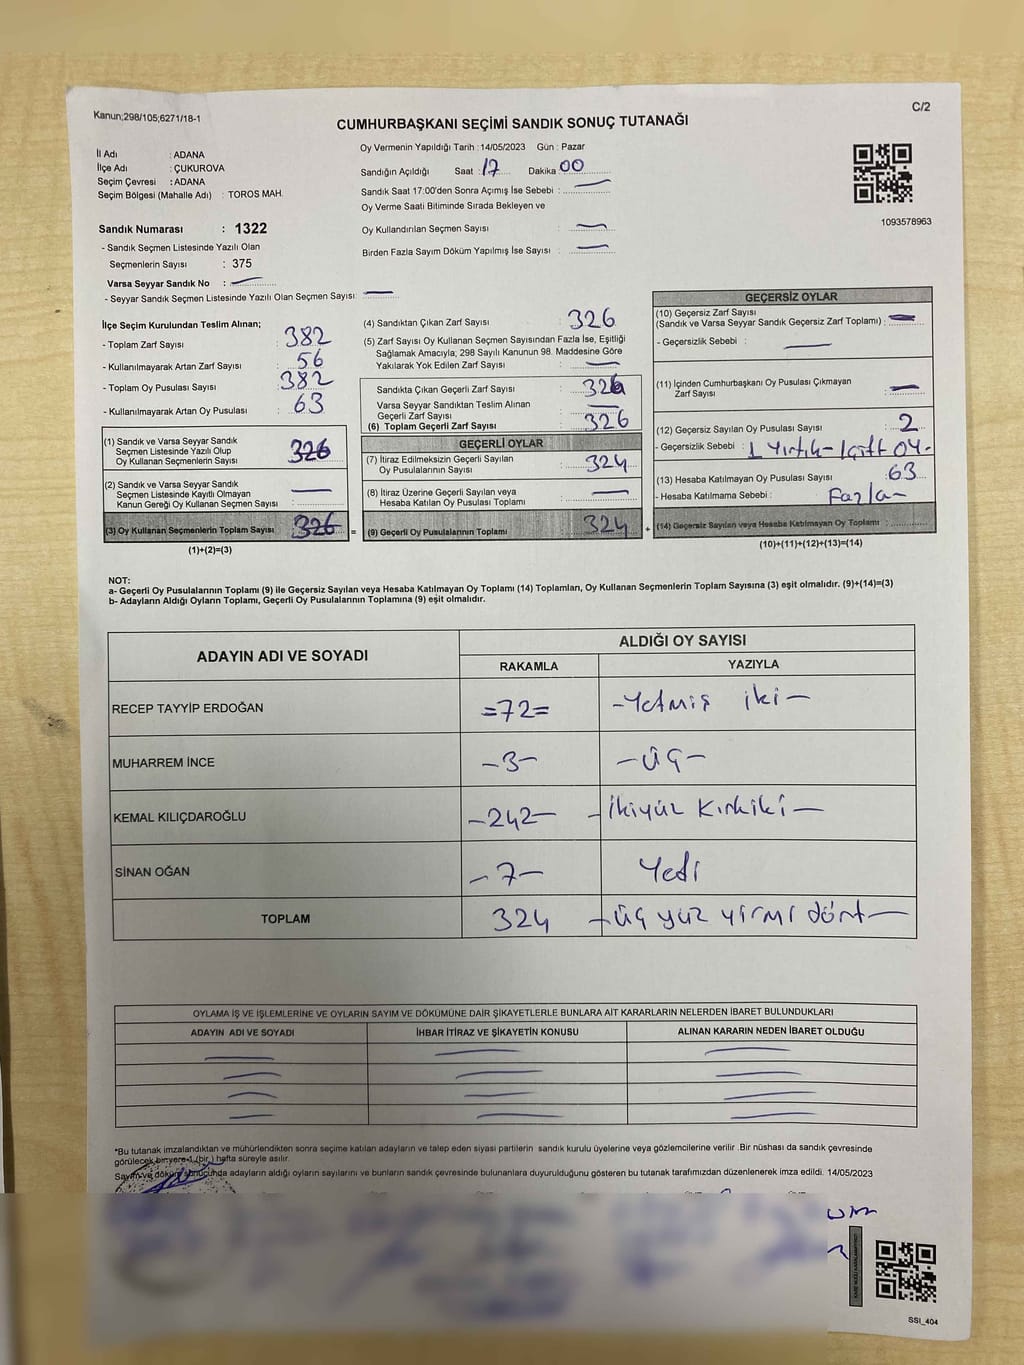 Kanun;298/105;6271/18-1
C/2
CUMHURBAŞKANI SEÇİMİ SANDIK SONUÇ TUTANAĞI
İl Adı : ADANA
İlçe Adı : ÇUKUROVA
Seçim Çevresi : ADANA
Seçim Bölgesi (Mahalle Adı) : TOROS MAH.
Sandık Numarası : 1322
- Sandık Seçmen Listesinde Yazılı Olan
Seçmenlerin Sayısı : 375
Varsa Seyyar Sandık No :
- Seyyar Sandık Seçmen Listesinde Yazılı Olan Seçmen Sayısı:
Oy Vermenin Yapıldığı Tarih : 14/05/2023 Gün : Pazar
Sandığın Açıldığı Saat : 17 Dakika 00
Sandık Saat 17:00'den Sonra Açımış İse Sebebi :
Oy Verme Saati Bitiminde Sırada Bekleyen ve
Oy Kullandırılan Seçmen Sayısı :
Birden Fazla Sayım Döküm Yapılmış İse Sayısı :
1093578963
İlçe Seçim Kurulundan Teslim Alınan;
- Toplam Zarf Sayısı : 382
- Kullanılmayarak Artan Zarf Sayısı : 56
- Toplam Oy Pusulası Sayısı : 382
- Kullanılmayarak Artan Oy Pusulası : 63
(1) Sandık ve Varsa Seyyar Sandık
Seçmen Listesinde Yazılı Olup
Oy Kullanan Seçmenlerin Sayısı : 326
(2) Sandık ve Varsa Seyyar Sandık
Seçmen Listesinde Kayıtlı Olmayan
Kanun Gereği Oy Kullanan Seçmen Sayısı :
(3) Oy Kullanan Seçmenlerin Toplam Sayısı : 326 =
(1)+(2)=(3)
(4) Sandıktan Çıkan Zarf Sayısı : 326
(5) Zarf Sayısı Oy Kullanan Seçmen Sayısından Fazla İse, Eşitliği
Sağlamak Amacıyla; 298 Sayılı Kanunun 98. Maddesine Göre
Yakılarak Yok Edilen Zarf Sayısı :
Sandıkta Çıkan Geçerli Zarf Sayısı : 326
Varsa Seyyar Sandıktan Teslim Alınan
Geçerli Zarf Sayısı :
(6) Toplam Geçerli Zarf Sayısı : 326
GEÇERLİ OYLAR
(7) İtiraz Edilmeksizin Geçerli Sayılan
Oy Pusulalarının Sayısı : 324
(8) İtiraz Üzerine Geçerli Sayılan veya
Hesaba Katılan Oy Pusulası Toplamı :
(9) Geçerli Oy Pusulalarının Toplamı : 324 +
GEÇERSİZ OYLAR
(10) Geçersiz Zarf Sayısı
(Sandık ve Varsa Seyyar Sandık Geçersiz Zarf Toplamı) :
- Geçersizlik Sebebi :
(11) İçinden Cumhurbaşkanı Oy Pusulası Çıkmayan
Zarf Sayısı :
(12) Geçersiz Sayılan Oy Pusulası Sayısı : 2
- Geçersizlik Sebebi : 1 Yırtık - 1çift oy -
(13) Hesaba Katılmayan Oy Pusulası Sayısı : 63
- Hesaba Katılmama Sebebi : Fazla -
(14) Geçersiz Sayılan veya Hesaba Katılmayan Oy Toplamı :
(10)+(11)+(12)+(13)=(14)
NOT:
a- Geçerli Oy Pusulalarının Toplamı (9) ile Geçersiz Sayılan veya Hesaba Katılmayan Oy Toplamı (14) Toplamları, Oy Kullanan Seçmenlerin Toplam Sayısına (3) eşit olmalıdır. (9)+(14)=(3)
b- Adayların Aldığı Oyların Toplamı, Geçerli Oy Pusulalarının Toplamına (9) eşit olmalıdır.
ADAYIN ADI VE SOYADI
ALDIĞI OY SAYISI
RAKAMLA YAZIYLA
RECEP TAYYİP ERDOĞAN =72= -Yetmiş iki-
MUHARREM İNCE -3- -üç-
KEMAL KILIÇDAROĞLU -242- -İkiyüz kırkiki-
SİNAN OĞAN -7- Yedi
TOPLAM 324 -üç yüz yirmi dört-
OYLAMA İŞ VE İŞLEMLERİNE VE OYLARIN SAYIM VE DÖKÜMÜNE DAİR ŞİKAYETLERLE BUNLARA AİT KARARLARIN NELERDEN İBARET BULUNDUKLARI
ADAYIN ADI VE SOYADI İHBAR İTİRAZ VE ŞİKAYETİN KONUSU ALINAN KARARIN NEDEN İBARET OLDUĞU
*Bu tutanak imzalandıktan ve mühürlendikten sonra seçime katılan adayların ve talep eden siyasi partilerin sandık kurulu üyelerine veya gözlemcilerine verilir .Bir nüshası da sandık çevresinde
görülecek bir yere 1 (bir ) hafta süreyle asılır.
Sayım ve döküm sonucunda adayların aldığı oyların sayılarını ve bunların sandık çevresinde bulunanlara duyurulduğunu gösteren bu tutanak tarafımızdan düzenlenerek imza edildi. 14/05/2023
SSI_404